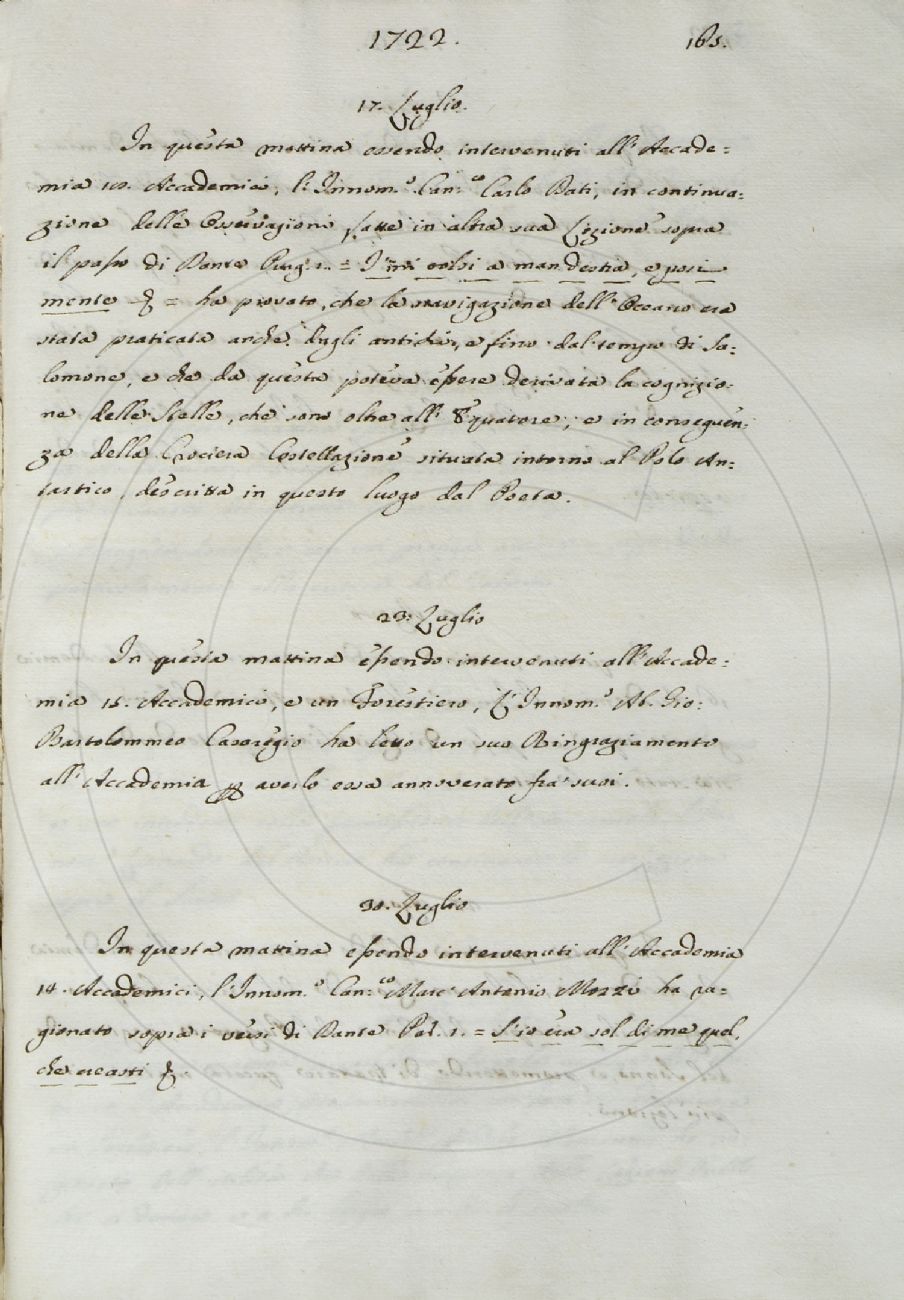 1722. 165.
17. Luglio.
In questa mattina essendo intervenuti all'Accade=
mia 10. Accademici, l'Innom.º Can.co Carlo Dati, in continua=
zione delle Osservazioni fatte in altra sua Lezione sopra
il passo di Dante Purg. 1. = I' mi volsi a man destra, e posi
mente &. = ha provato, che la navigazione dell'Oceano era
stata praticata anche dagli antichi, e fino dal tempo di Sa=
lomone, e che da questa poteva essere derivata la cognizio=
ne delle Stelle, che sono oltre all'Equatore; e in conseguen=
za della Crociera Costellazione situata intorno al Polo An=
tartico, descritta in questo luogo dal Poeta.
23. Luglio
In questa mattina essendo intervenuti all'Accade=
mia 15. Accademici, e un Forestiero, L'Innom.º Ab. Gio:
Bartolommeo Casaregio ha letto un suo Ringraziamento
all'Accademia per averlo essa annoverato fra' suoi.
30. Luglio
In questa mattina essendo intervenuti all'Accademia
14. Accademici, l'Innom.º Can.co Marc'Antonio Mozzi ha ra=
gionato sopra i versi di Dante Par. 1. = S'io era sol di me quel,
che creasti &.